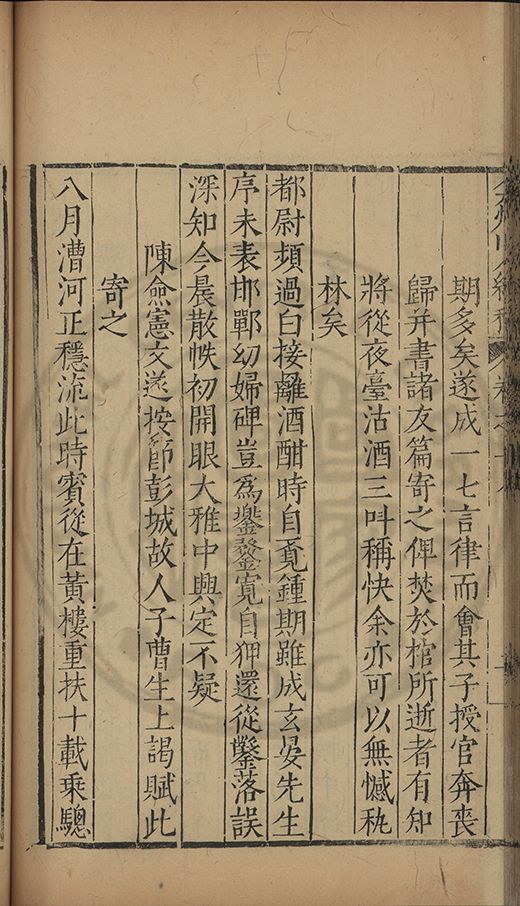 期多矣遂成一七言律而會其子授官奔喪
歸并書諸友篇寄之俾焚於棺所逝者有知
將從夜臺沽酒三呌稱快余亦可以無憾秇
林矣
都尉頻過白接離酒酣時自覔鍾期雖成玄晏先生
序未表邯鄲幼婦碑豈爲鏧鏧寛自狎還從鑿落誤
深知今晨散帙初開眼大雅中興定不疑
陳僉憲文遂按節彭城故人子曹生上謁賦此
寄之
八月漕河正穩流此時賓從在黃樓重扶十載乘驄